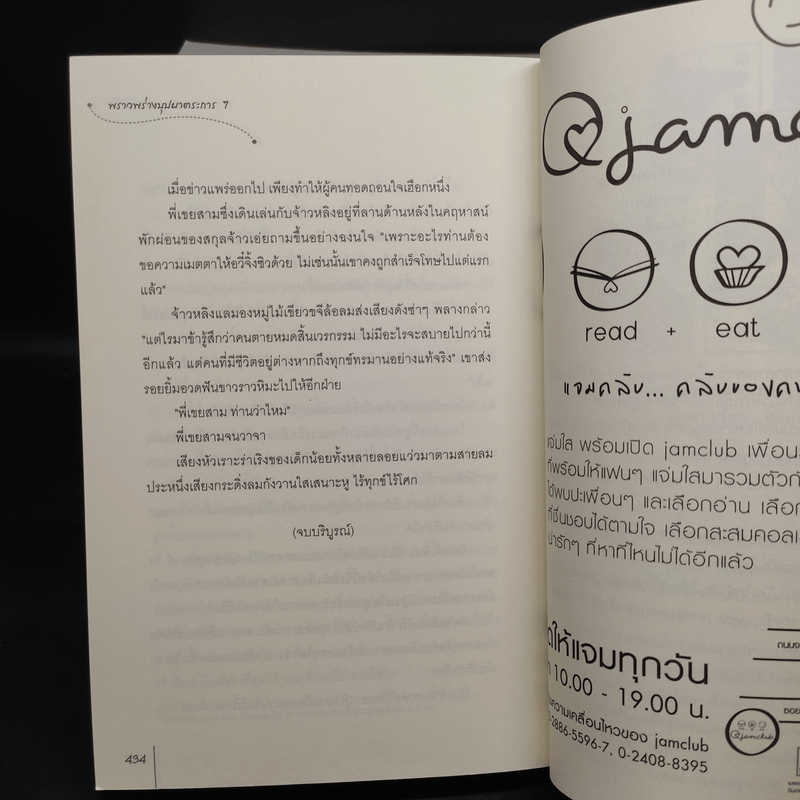 พราวพร่างบุปผาตระการ 7
เมื่อข่าวแพร่ออกไป เพียงทำให้ผู้คนทอดถอนใจเฮือกหนึ่ง
พี่เขยสามซึ่งเดินเล่นกับจ้าวหลิงอยู่ที่ลานด้านหลังในคฤหาสน์
พักผ่อนของสกุลจ้าวเอ่ยถามขึ้นอย่างฉงนใจ "เพราะอะไรท่านต้อง
ขอความเมตตาให้อวี๋จิ้งซิวด้วย ไม่เช่นนั้นเขาคงถูกสำเร็จโทษไปแต่แรก
แล้ว"
จ้าวหลิงแลมองหมู่ไม้เขียวขจีล้อลมส่งเสียงดังซ่าๆ พลางกล่าว
"แต่ไรมาข้ารู้สึกว่าคนตายหมดสิ้นเวรกรรม ไม่มีอะไรจะสบายไปกว่านี้
อีกแล้ว แต่คนที่มีชีวิตอยู่ต่างหากถึงทุกข์ทรมานอย่างแท้จริง" เขาส่ง
รอยยิ้มอวดฟันขาวราวหิมะไปให้อีกฝ่าย
"พี่เขยสาม ท่านว่าไหม"
พี่เขยสามจนวาจา
เสียงหัวเราะร่าเริงของเด็กน้อยทั้งหลายลอยแว่วมาตามสายลม
ประหนึ่งเสียงกระดิ่งลมกังวานใสเสนาะหู ไร้ทุกข์ไร้โศก
(จบบริบูรณ์)
434
@jamc
read + eat
แจมคลับ... คลับของค
แจ่มใส พร้อมเปิด jamclub เพื่อน
ที่พร้อมให้แฟนๆ แจ่มใสมารวมตัวกั
ได้พบปะเพื่อนๆ และเลือกอ่าน เลือก
ที่ชื่นชอบได้ตามใจ เลือกสะสมคอลเ
น่ารักๆ ที่หาที่ไหนไม่ได้อีกแล้ว
ให้แจมทุกวัน
10.00 - 19.00 น.
ความเคลื่อนไหวของ jamclub
-2886-5596-7, 0-2408-8395
@jamclub
ถนน
ซอย